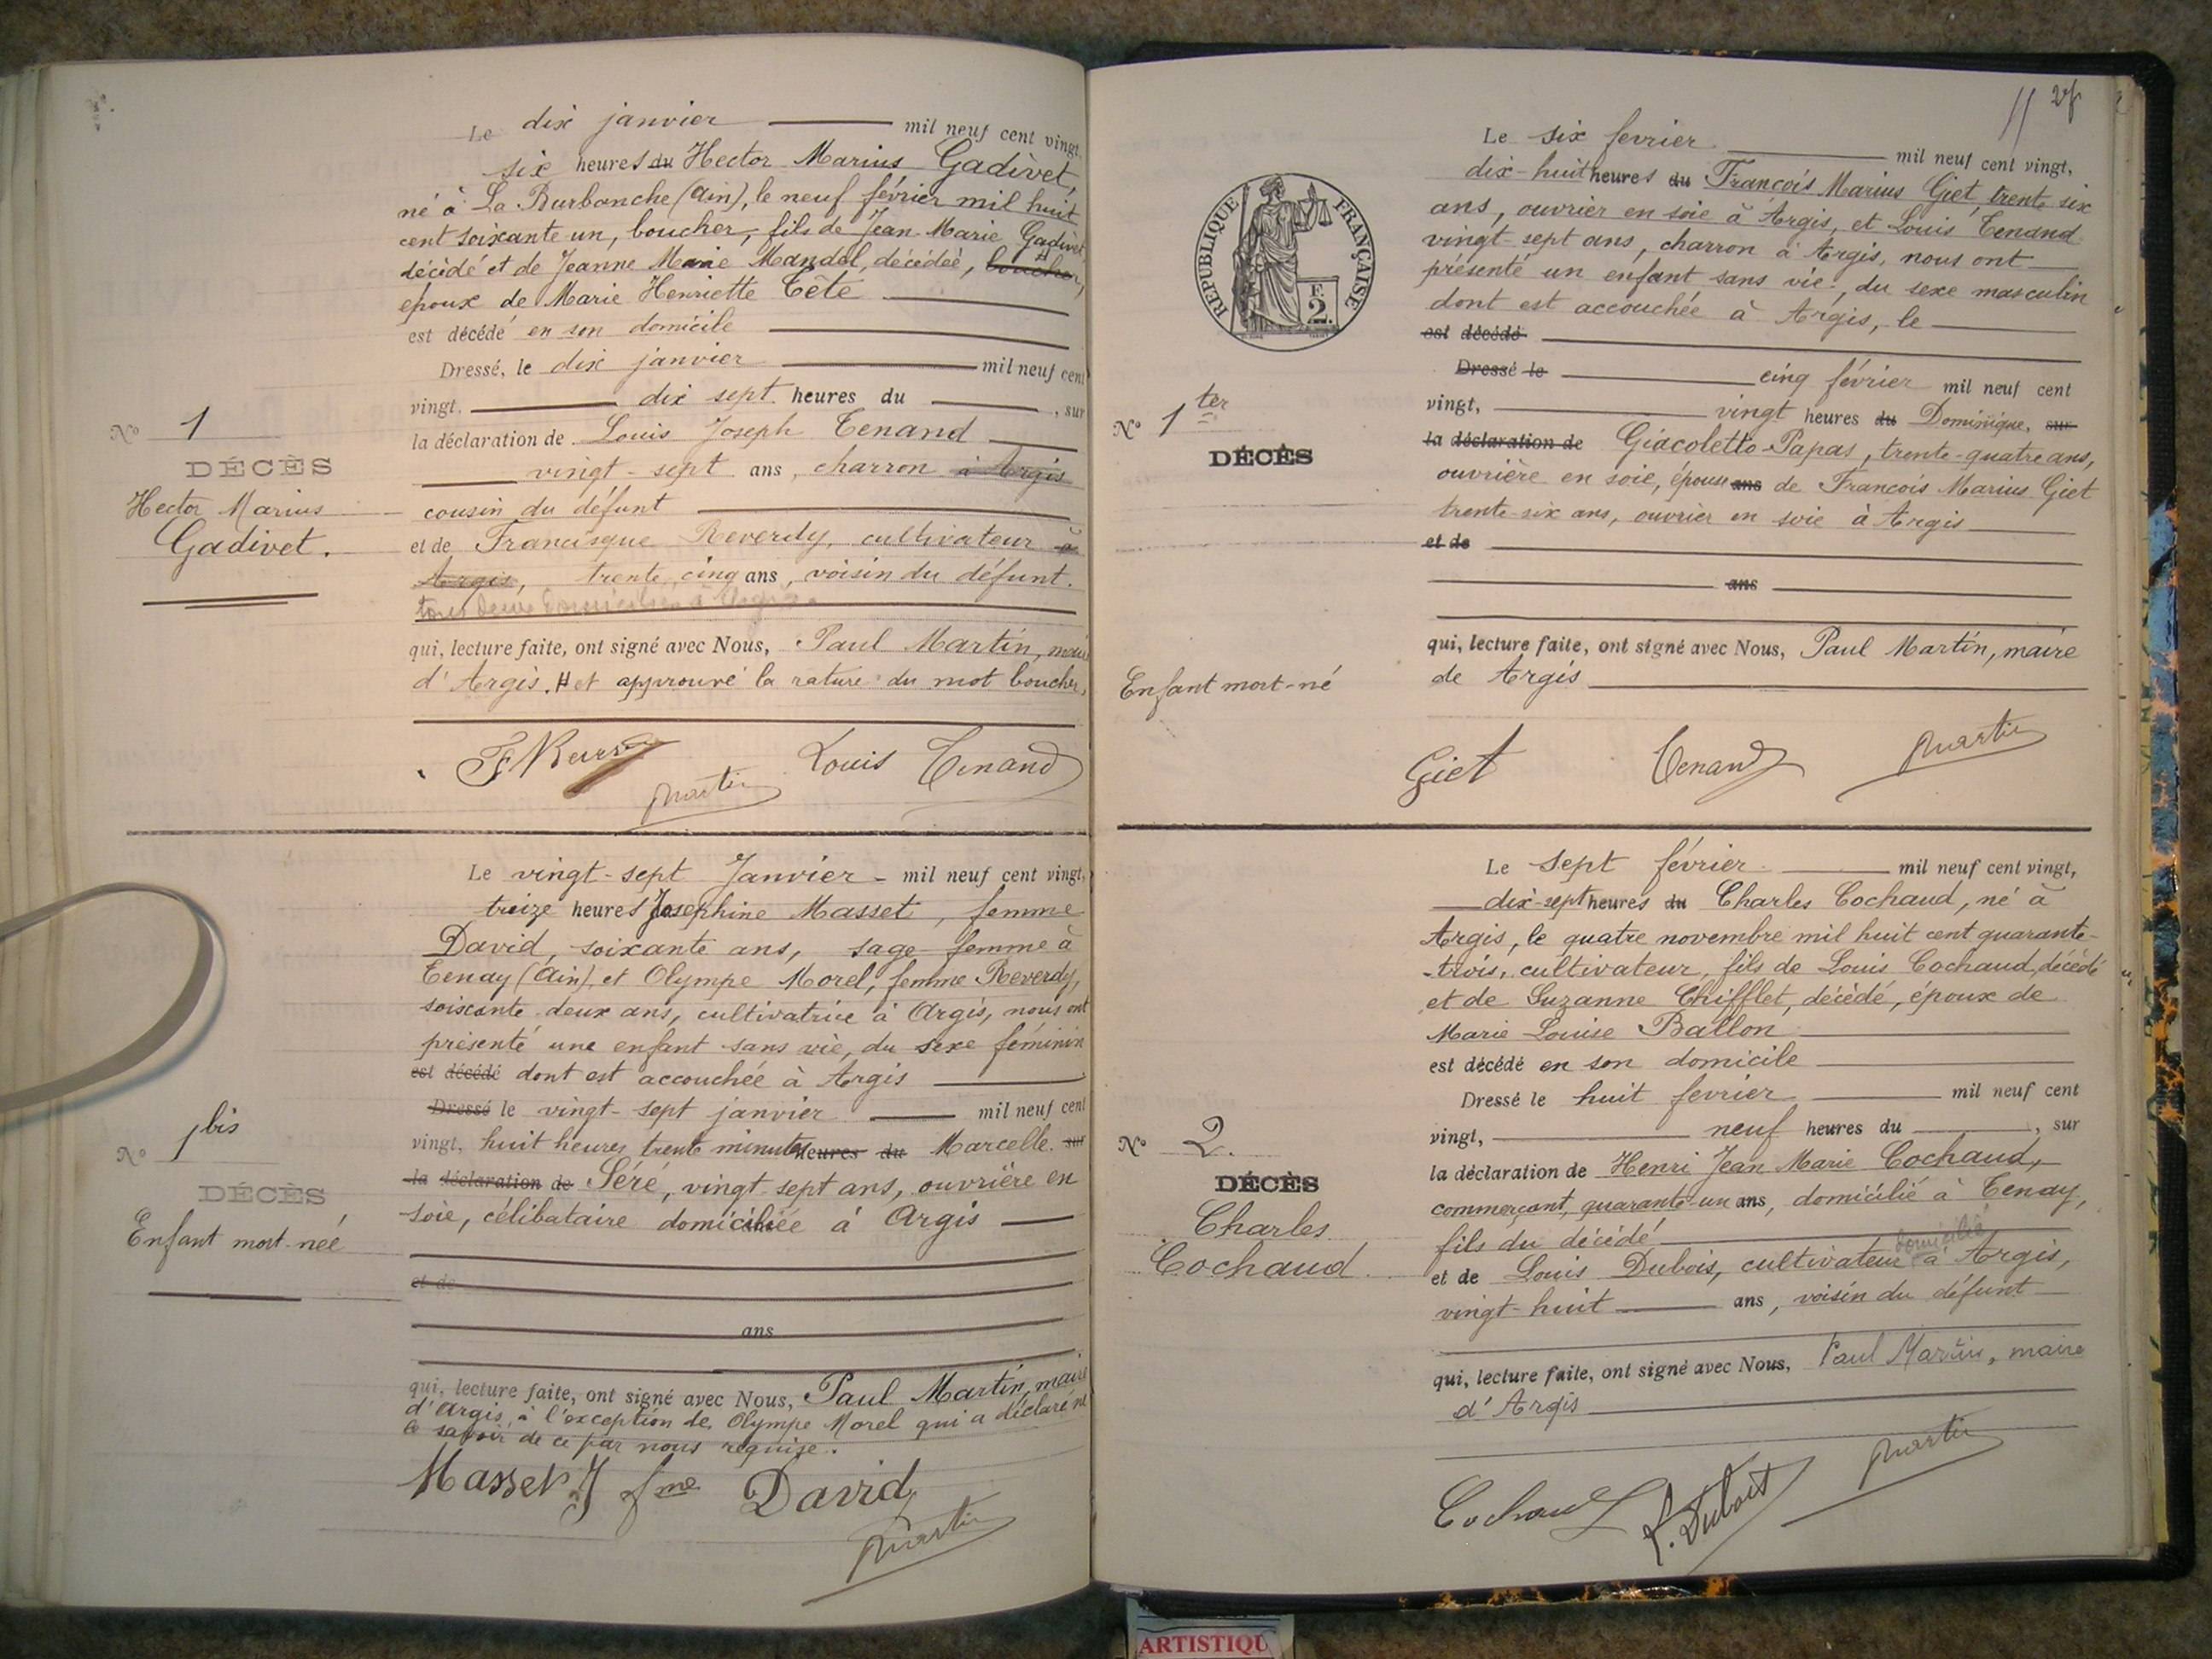 Le dix janvier mil neuf cent vingt,
six heures du Hector Marius Gadivet,
né à La Burbanche (Ain), le neuf février mil huit
cent soixante un, boucher, fils de Jean-Marie Gadivet,
décédé et de Jeanne Marie Mandal, décédée, boucher,
epoux de Marie Henriette Tête
est décédé en son domicile
Dressé, le dix janvier mil neuf cent
vingt, dix sept heures du , sur
la déclaration de Louis Joseph Tenand
vingt-sept ans, charron à Argis
cousin du défunt
et de Francisque Reverdy, cultivateur à
Argis, trente cinq ans, voisin du défunt.
tous deux domiciliés à Argis.
qui, lecture faite, ont signé avec Nous, Paul Martin, maire
d'Argis. # et approuvé la rature du mot boucher,
Louis Tenand
Martin
N° 1
DÉCÈS
Hector Marius
Gadivet.
Le vingt-sept Janvier - mil neuf cent vingt,
treize heures Josephine Masset, femme
David, soixante ans, sage-femme à
Tenay (Ain), et Olympe Morel, femme Reverdy,
soixante deux ans, cultivatrice à Argis, nous ont
présenté une enfant sans vie, du sexe féminin
est décédé dont est accouchée à Argis
Dressé le vingt-sept janvier mil neuf cent
vingt, huit heures trente minutes heures du Marcelle sur
la déclaration de Séré, vingt-sept ans, ouvrière en
soie, célibataire domiciliée à Argis
et de
ans
qui, lecture faite, ont signé avec Nous, Paul Martin, maire
d'Argis, à l'exception de Olympe Morel qui a déclaré ne
le savoir de ce par nous requise.
Masset J fme David
Martin
N° 1bis
DÉCÈS
Enfant mort-née
11 28
RÉPUBLIQUE FRANÇAISE
2.
Le six fevrier mil neuf cent vingt,
dix-huit heures du François Marius Giet, trente six
ans, ouvrier en soie à Argis, et Louis Tenand
vingt-sept ans, charron à Argis, nous ont
présenté un enfant sans vie, du sexe masculin
dont est accouchée à Argis, le
est décédé
Dressé le cinq février mil neuf cent
vingt, vingt heures du Dominique, sur
la déclaration de Giacoletto-Papas, trente-quatre ans,
ouvrière en soie, épouse ans de François Marius Giet
trente-six ans, ouvrier en soie à Argis
et de
ans
qui, lecture faite, ont signé avec Nous, Paul Martin, maire
de Argis
Giet Tenand Martin
N° 1ter
DÉCÈS
Enfant mort-né
Le sept février mil neuf cent vingt,
dix-sept heures du Charles Cochaud, né à
Argis, le quatre novembre mil huit cent quarante-
-trois, cultivateur, fils de Louis Cochaud, décédé
et de Suzanne Chifflet, décédé, époux de
Marie Louise Ballon
est décédé en son domicile
Dressé le huit fevrier mil neuf cent
vingt, neuf heures du , sur
la déclaration de Henri Jean Marie Cochaud,
commerçant, quarante-un ans, domicilié à Tenay,
fils du décédé
domicilié
et de Louis Dubois, cultivateur à Argis,
vingt-huit ans, voisin du défunt
qui, lecture faite, ont signé avec Nous, Paul Martin, maire
d'Argis
Cochaud L. Dubois Martin
N° 2.
DÉCÈS
Charles
Cochaud
ARTISTIQU